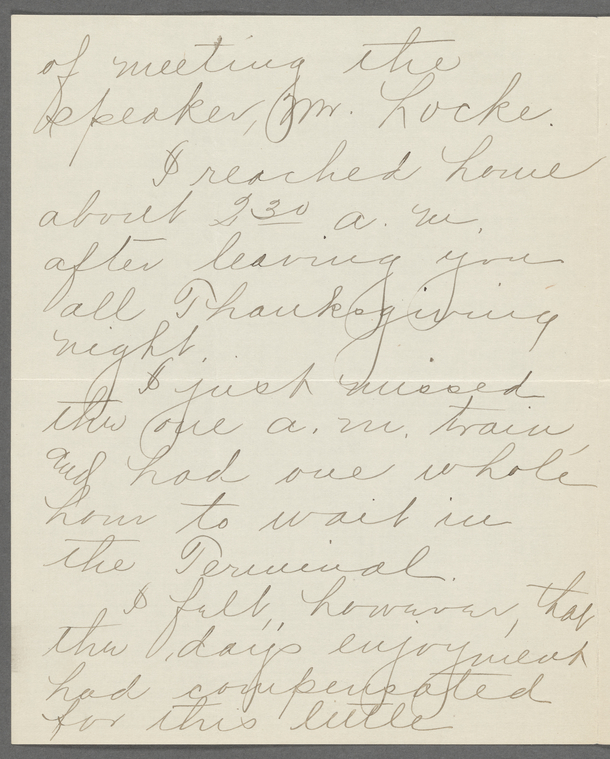 of meeting the
speaker, Mr. Locke.
I reached home
about 2 30 a. m.
after leaving you
all Thanksgiving
night.
I just missed
the one a. m. train,
and had one whole
hour to wait in
the Terminal.
I felt, however, that
the day's enjoyment
had compensated
for this little